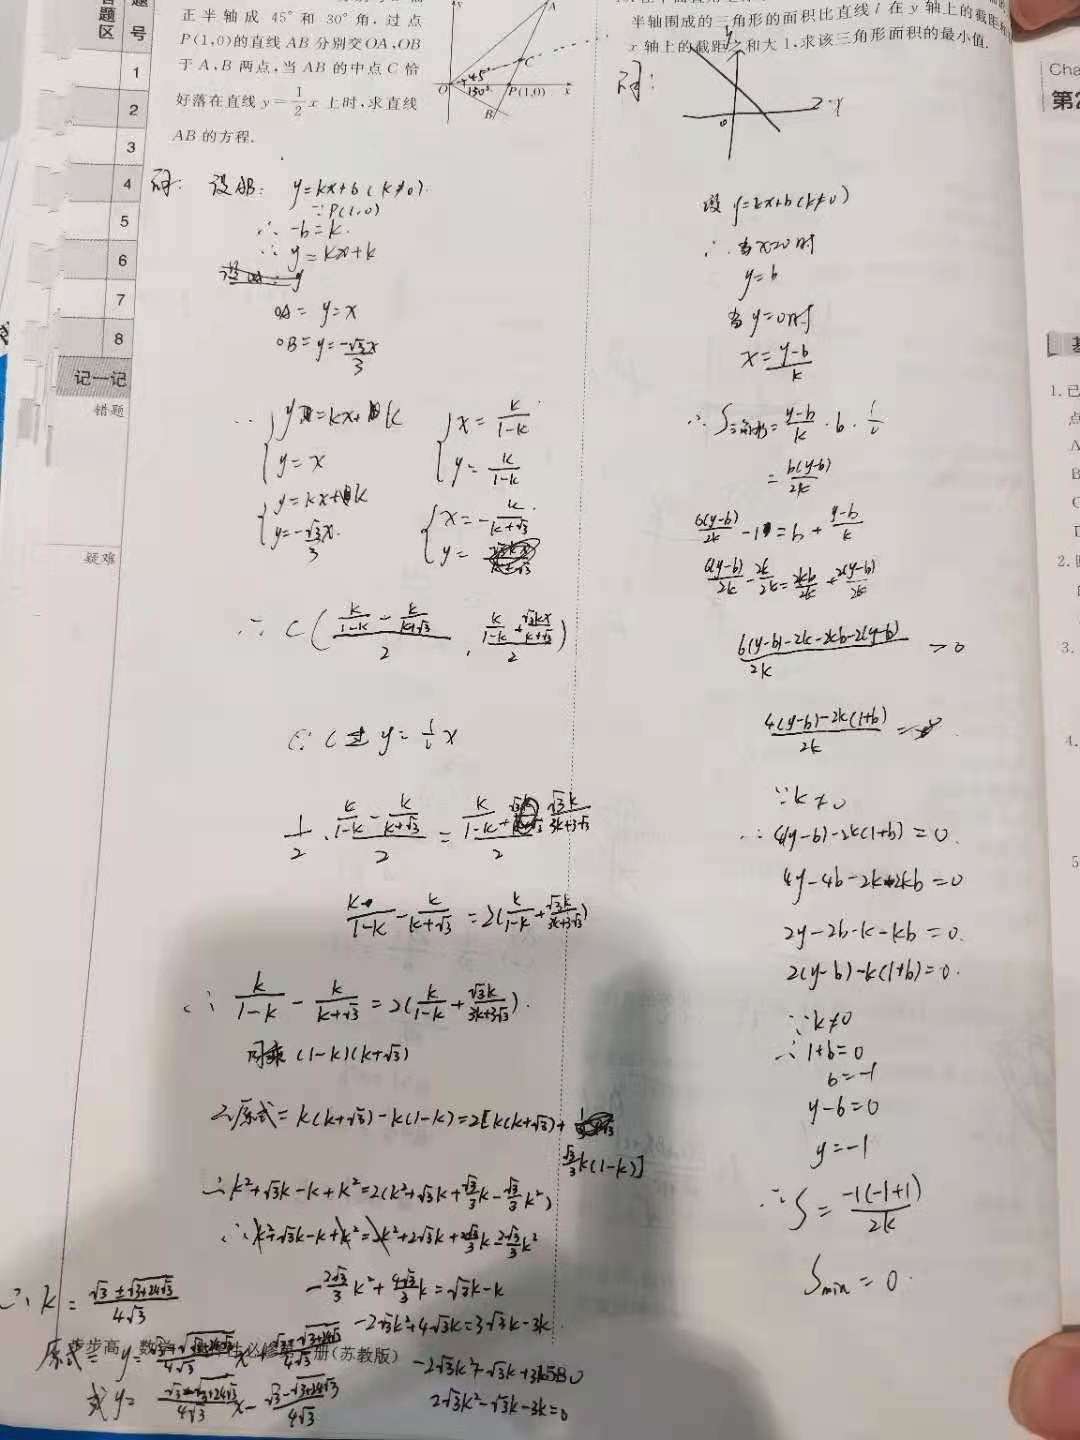 题
号
题
区
1
2
3
4
5
6
7
8
记一记
错题
疑难
正半轴成 45°和 30°角,过点
P(1,0)的直线 AB 分别交OA,OB
于 A,B 两点,当 AB 的中点 C 恰
好落在直线 y=1/2 x 上时,求直线
AB 的方程.
A
C
45°
30°
O
P(1,0)
x
B
解: 设AB: y=kx+b(k≠0).
∵P(1,0)
∴ -b=k.
∴ y=kx+k
OA= y=x
OB= y=-√3x/3
{y=kx+k
y=x
{x=k/(1-k)
y=k/(1-k)
{y=kx+k
y=-√3x/3
{x=-k/(k+√3)
y=
∴ C((k/(1-k) - k/(k+√3))/2, (k/(1-k)+√3kx/(k+√3))/2)
∵ C过 y=1/2 x
1/2·(k/(1-k) - k/(k+√3))/2 = (k/(1-k)+ √3k/(3k+3√3))/2
k/(1-k) - k/(k+√3) = 2(k/(1-k)+√3k/(3k+3√3))
∴ k/(1-k) - k/(k+√3) = 2(k/(1-k)+√3k/(3k+3√3)).
同乘 (1-k)(k+√3)
∴原式= k(k+√3)-k(1-k)=2[k(k+√3)+
√3/3 k(1-k)]
∴k²+√3k-k+k²=2(k²+√3k+√3/3 k-√3/3 k²)
∴k²+√3k-k+k²=2k²+2√3k+2√3/3 k-2√3/3 k²
-2√3/3 k²+4√3/3 k=√3k-k
-2√3k²+4√3k=3√3k-3k
2√3k²-√3k-3k=0
∴ k= (√3±√(3+24√3))/(4√3)
步步高
数学
必修第
册(苏教版)
半轴围成的三角形的面积比直线 l 在 y 轴上的截距
x 轴上的截距之和大 1,求该三角形面积的最小值.
解:
0
设 y=kx+b(k≠0)
∴当x=0时
y=b
当 y=0时
x=(y-b)/k
∴S三角形=(y-b)/k·b·1/2
=b(y-b)/2k
b(y-b)/2k -1=b+(y-b)/k
b(y-b)/2k - 2k/2k = 2kb/2k + 2(y-b)/2k
(6(y-b)-2k-2kb-2(y-b))/2k >0
(4(y-b)-2k(1+b))/2k =
∵k≠0
∴4(y-b)-2k(1+b)=0.
4y-4b-2k-2kb=0
2y-2b-k-kb=0.
2(y-b)-k(1+b)=0.
∵k≠0
∴1+b=0
b=-1
y-b=0
y=-1
∴S=-1(-1+1)/2k
Smin=0.
Cha
第2
基
1.已
点
A
B
C
D
2.
3.
4.
5